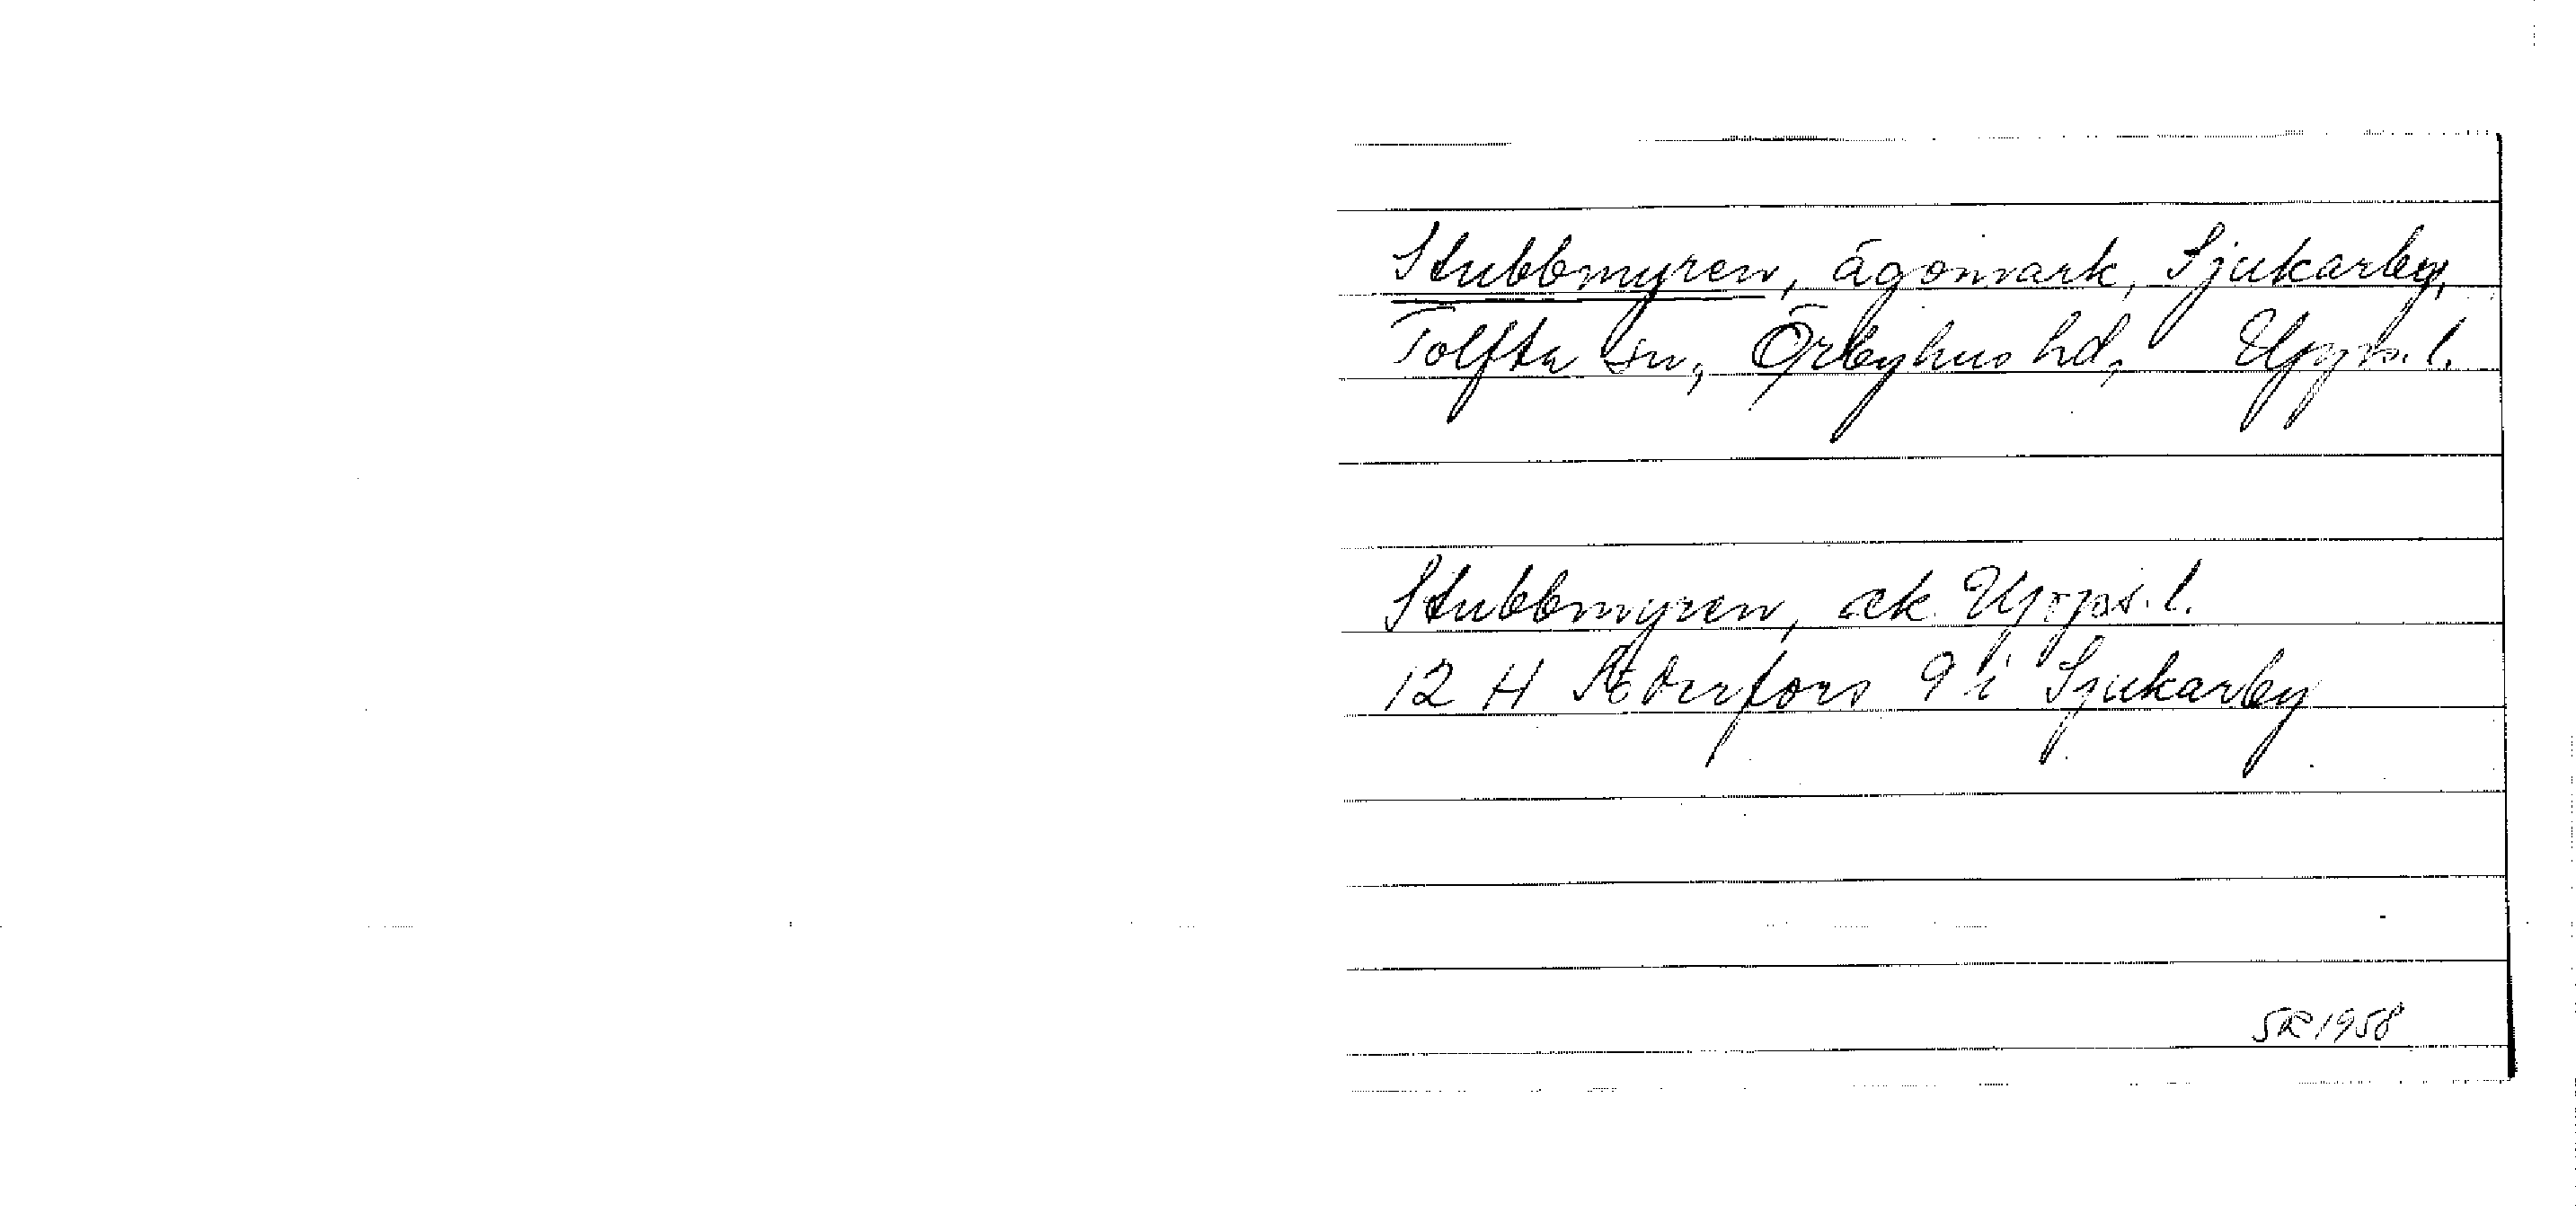 Stubbmyren, ägomark, Sjukarby,
Tolfta sn, Örbyhus hd, Upps. l.
Stubbmyren, ek Upps. l.
12 H Söderfors 9 i Sjukarby
SR 1958